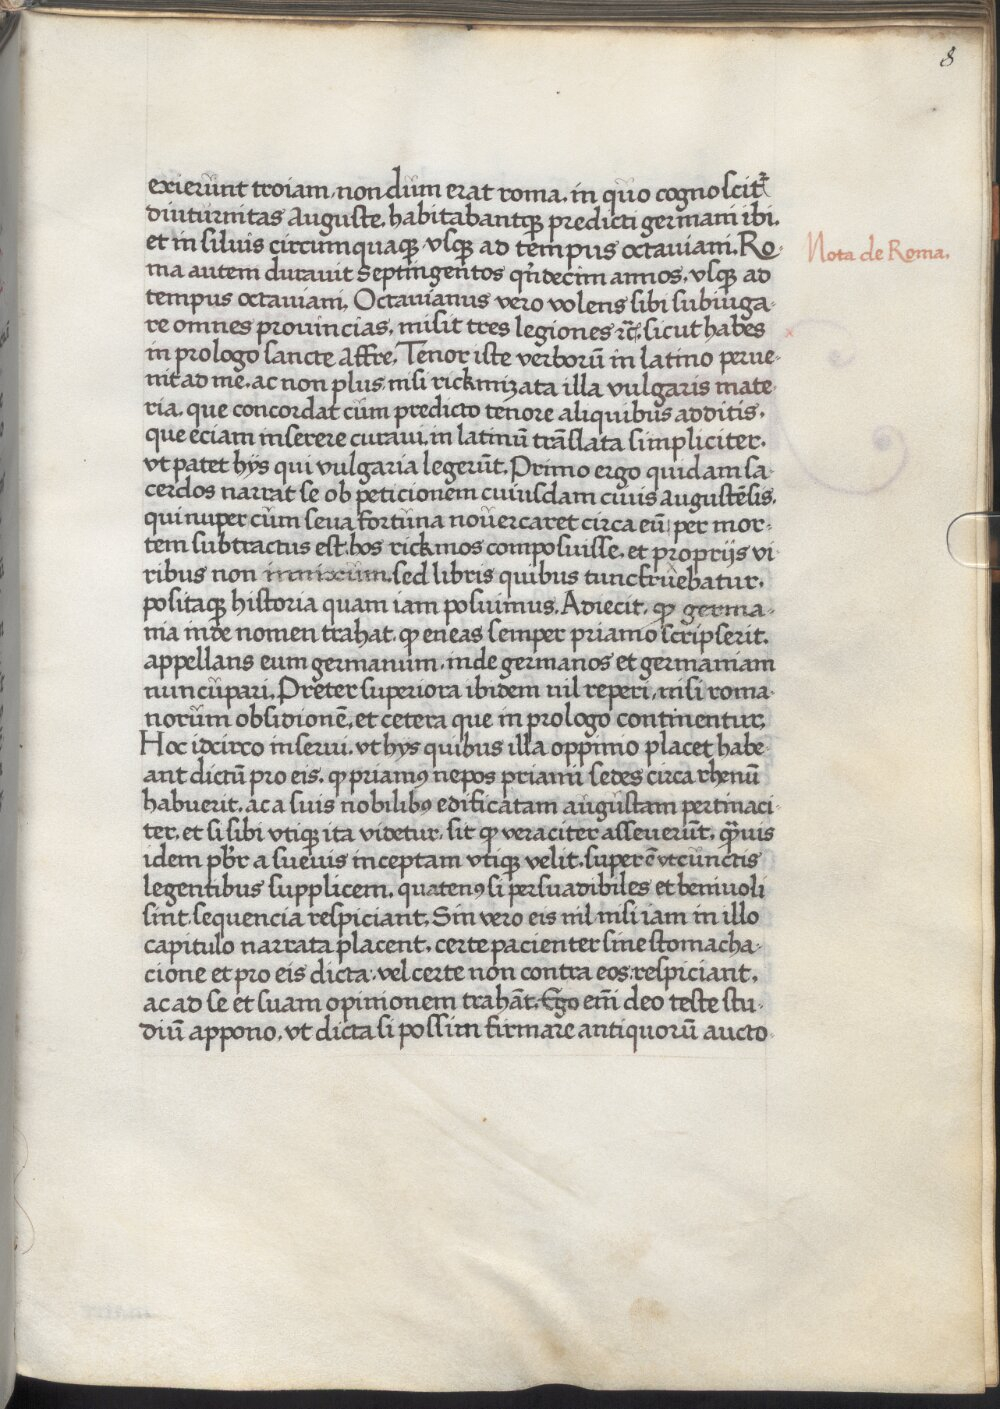 8
exierūnt troiam, non dum erat roma, in quo cognoscitr̄
diuturnitas Auguste, habitabantqꝫ predicti germani ibi,
et in siluis circumquaqꝫ, vsqꝫ ad tempus octauiani. Ro-
Nota de Roma.
ma autem durauit septingentos qͥndecim annos, vsqꝫ ad
tempus octauiani. Octauianus vero volens sibi subiuga-
re omnes prouincias, misit tres legiones rc̄. sicut habes
in prologo sancte Affre. Tenor iste verborū in latino perue-
nit ad me, ac non plus, nisi rickmizata illa vulgaris mate-
ria, que concordat cum predicto tenore aliquibus additis,
que eciam inserere curaui, in latinū trāslata simpliciter,
vt patet hijs qui vulgaria legerūt. Primo ergo quidam sa-
cerdos narrat se ob peticionem cuiusdam ciuis augustēsis,
qui nuper cum seua fortuna nouercaret circa eū, per mor-
tem subtractus est, hos rickmos composuisse, et proprijs vi
ribus non innixum, sed libris quibus tunc fruebatur,
positaqꝫ historia quam iam posuimus. Adiecit, ꝙ germa-
nia inde nomen trahat, ꝙ eneas semper priamo scripserit,
appellans eum germanum, inde germanos et germaniam
nuncupari. Preter superiora ibidem nil reperi, nisi roma-
norum obsidionē, et cetera que in prologo continentur.
Hoc idcirco inserui, vt hijs quibus illa oppinio placet habe-
ant dictū pro eis, ꝙ priamꝰ nepos priami sedes circa rhenū
habuerit, ac a suis nobilibꝰ edificatam augustam pertinaci-
ter, et si sibi vtiqꝫ ita videtur, sit ꝙ veraciter asseuerūt, qͣmuis
idem pb̄r a sueuis inceptam vtiqꝫ velit, super ē vt cunctis
legentibus supplicem, quatenꝰ si persuadibiles et beniuoli
sint, sequencia respiciant. Sin vero eis nil nisi iam in illo
capitulo narrata placent, certe pacienter sine stomacha-
cione et pro eis dicta, vel certe non contra eos, respiciant,
ac ad se et suam opinionem trahāt. Ego em̄ deo teste stu-
diū appono, vt dicta si possim firmare antiquorū aucto-